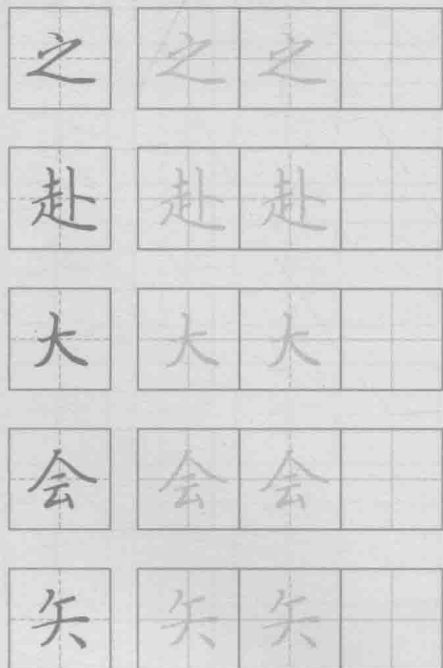 之 之 之
赴 赴 赴
大 大 大
会 会 会
矢 矢 矢